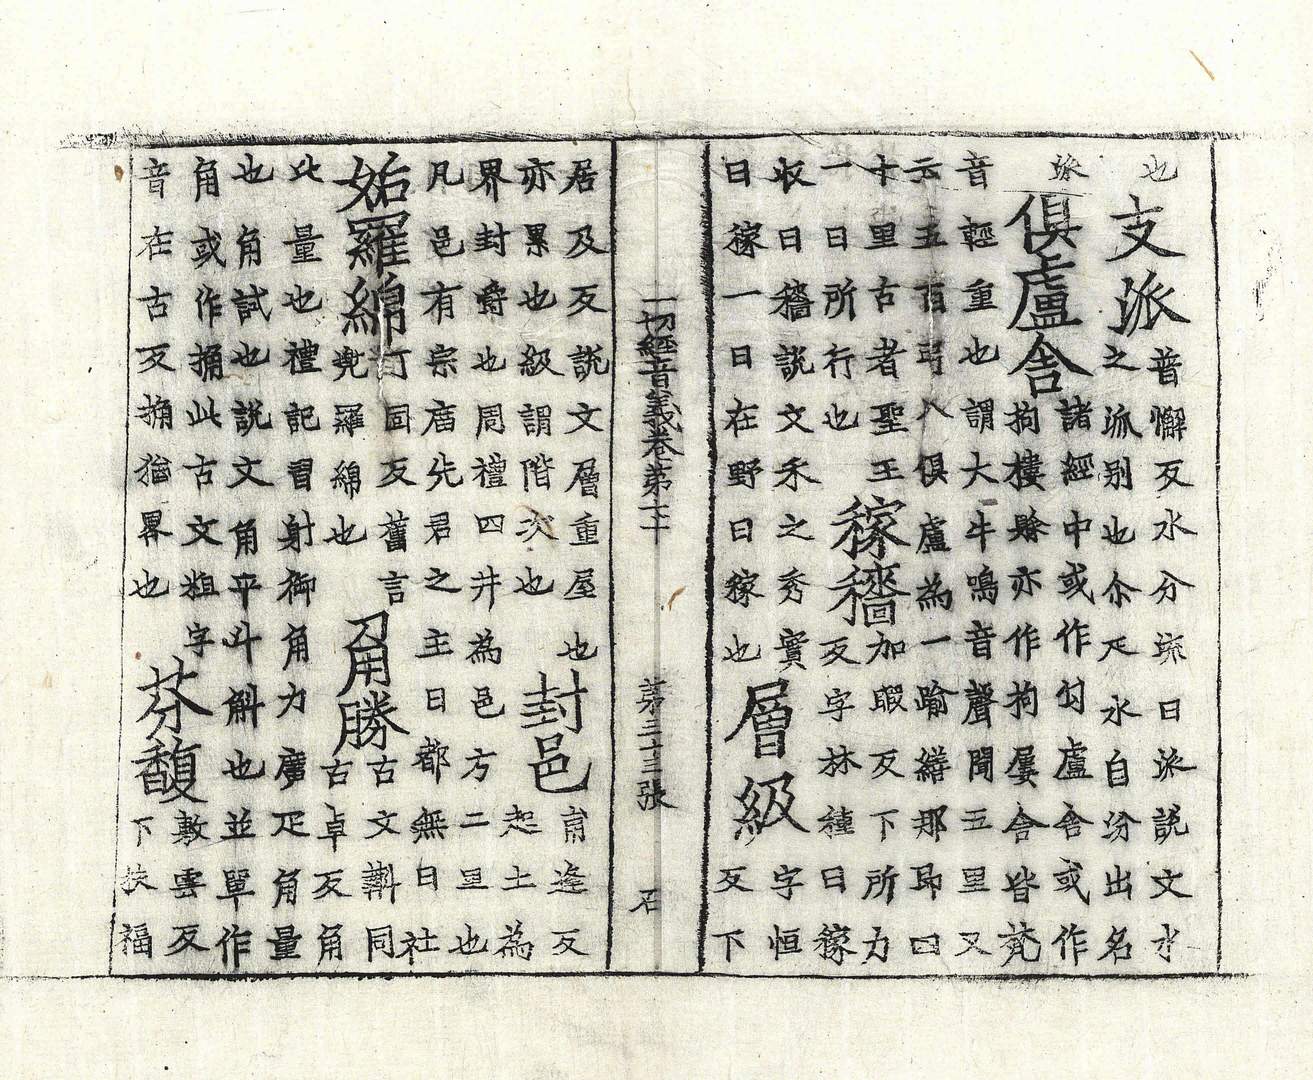 也
支派
普懈反水分流曰派說文水
之派別也尒疋水自汾出名
派
俱盧舍
諸經中或作句盧舍或作
拘樓賖亦作拘屢舍皆梵
音輕重也謂大牛鳴音聲聞五里又
云五百弓八俱盧為一喻繕那即曰
十里古者聖王
一日所行也
稼穡
加暇反下所力
反字林種曰稼
收曰穡說文禾之秀實
曰稼一曰在野曰稼也
層級
字恒
反下
一切經音義卷第七十 第三十三張 石
居及反說文層重屋也
亦累也級謂階次也
封邑
甫逢反
起土為
界封爵也周禮四井為邑方二里也
凡邑有宗庿先君之主曰都無曰社
妬羅綿
丁回反舊言
兜羅綿也
角勝
古文斠同
古卓反角
此量也禮記習射御角力廣疋角量
也角試也說文角平斗斛也並單作
角或作捔此古文粗字
音在古反捔猶畧也
芬馥
敷雲反
下扶福